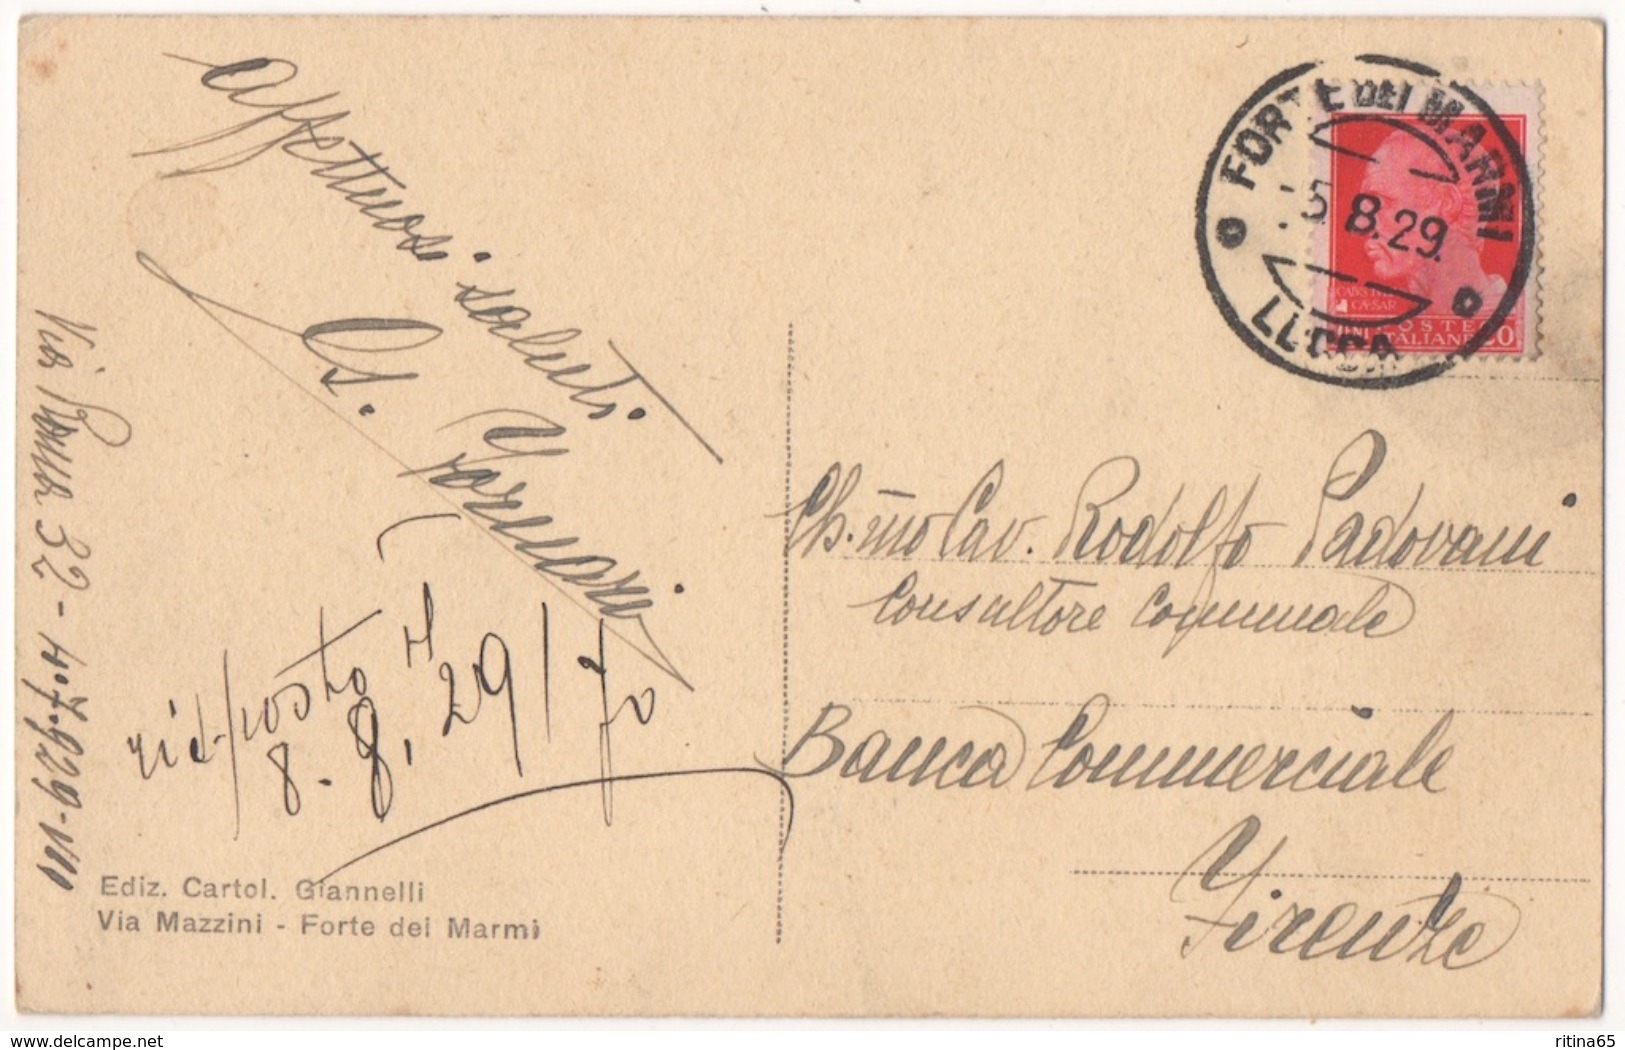 Affettuosi saluti
G. Fornari
Via Roma 32 - 4 agosto 929-VII
risposto il
8.8.29 / fo
Ediz. Cartol. Giannelli
Via Mazzini - Forte dei Marmi
FORTE DEI MARMI
5.8.29.
LUCCA
CAESAR
POSTE
ITALIANE
Ch.mo Cav. Rodolfo Padovani
Consultore Comunale
Banca Commerciale
Firenze
delcampe.net
ritina65